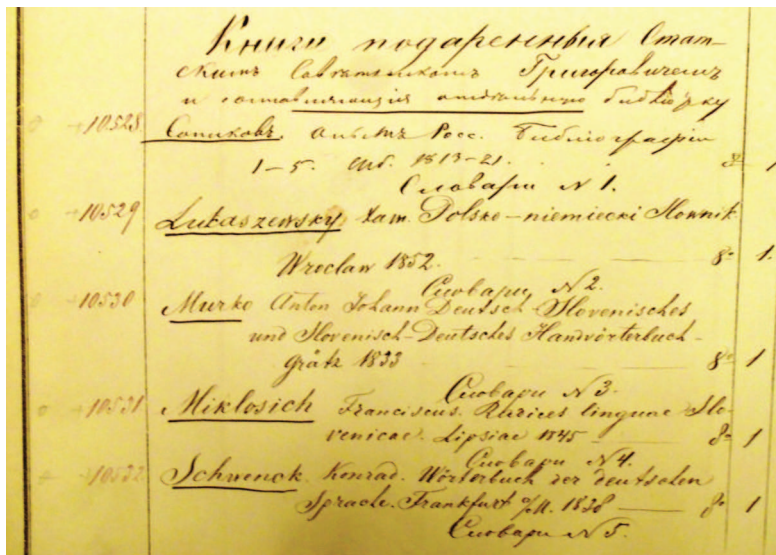 Книги подаренныя Стат-
скимъ Совѣтникомъ Григоровичемъ
и составляющія отдѣльную библіотеку
10528 Сопиковъ. Опытъ Росс. Библіографіи
1-5. Спб. 1813-21. 8° 1
Словари N 1.
10529 Lukaszewsky Xaw. Polsko-niemiecki Słownik
Wroclaw 1852. 8° 1.
Словари N 2.
10530 Murko Anton Johann Deutsch-Slovenisches
und Slovenisch-Deutsches Handwörterbuch
Grätz 1833 8° 1
Словари N 3.
10531 Miklosich Franciscus. Radices linguae Slo-
venicae. Lipsiae 1845 8° 1
Словари N 4.
10532 Schwenck. Konrad. Wörterbuch der deutschen
Sprache. Frankfurt a/M. 1838 8° 1
Словари N 5.